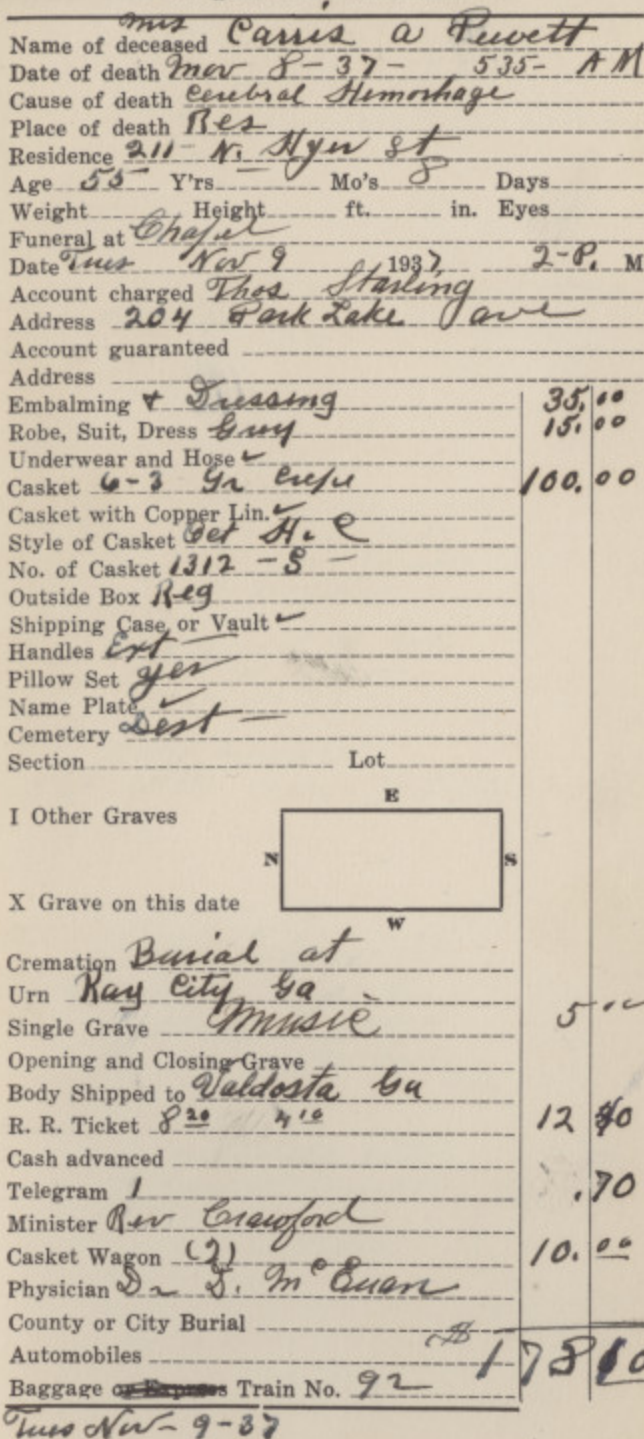 mrs
Name of deceased Carris a Puvett
Date of death Nov 8-37- 535- AM
Cause of death Cerebral Hemorhage
Place of death Res
Residence 211 N. Hyer St
Age 55 Y'rs — Mo's 8 Days
Weight Height ft. in. Eyes
Funeral at Chapel
Date Tues Nov 9 1937 2-P. M
Account charged Thos Starling
Address 204 Park Lake ave
Account guaranteed
Address
Embalming + Dressing 35.00
Robe, Suit, Dress Grey 15.00
Underwear and Hose ✓
Casket 6-3 Gr Crepe 100.00
Casket with Copper Lin. ✓
Style of Casket Oct H. C
No. of Casket 1312 - S -
Outside Box Reg
Shipping Case or Vault ✓
Handles Ext —
Pillow Set yes
Name Plate ✓
Cemetery Dest —
Section Lot
E
I Other Graves
N S
X Grave on this date
W
Cremation Burial at
Urn Ray City Ga
Single Grave Music 5 00
Opening and Closing Grave
Body Shipped to Valdosta Ga
R. R. Ticket 8 20 4 10 12 30
Cash advanced
Telegram 1 .70
Minister Rev Crawford
Casket Wagon (2) 10.00
Physician Dr J. McEuan
County or City Burial
Automobiles $ 178 10
Baggage or Express Train No. 92
Tues Nov - 9-37